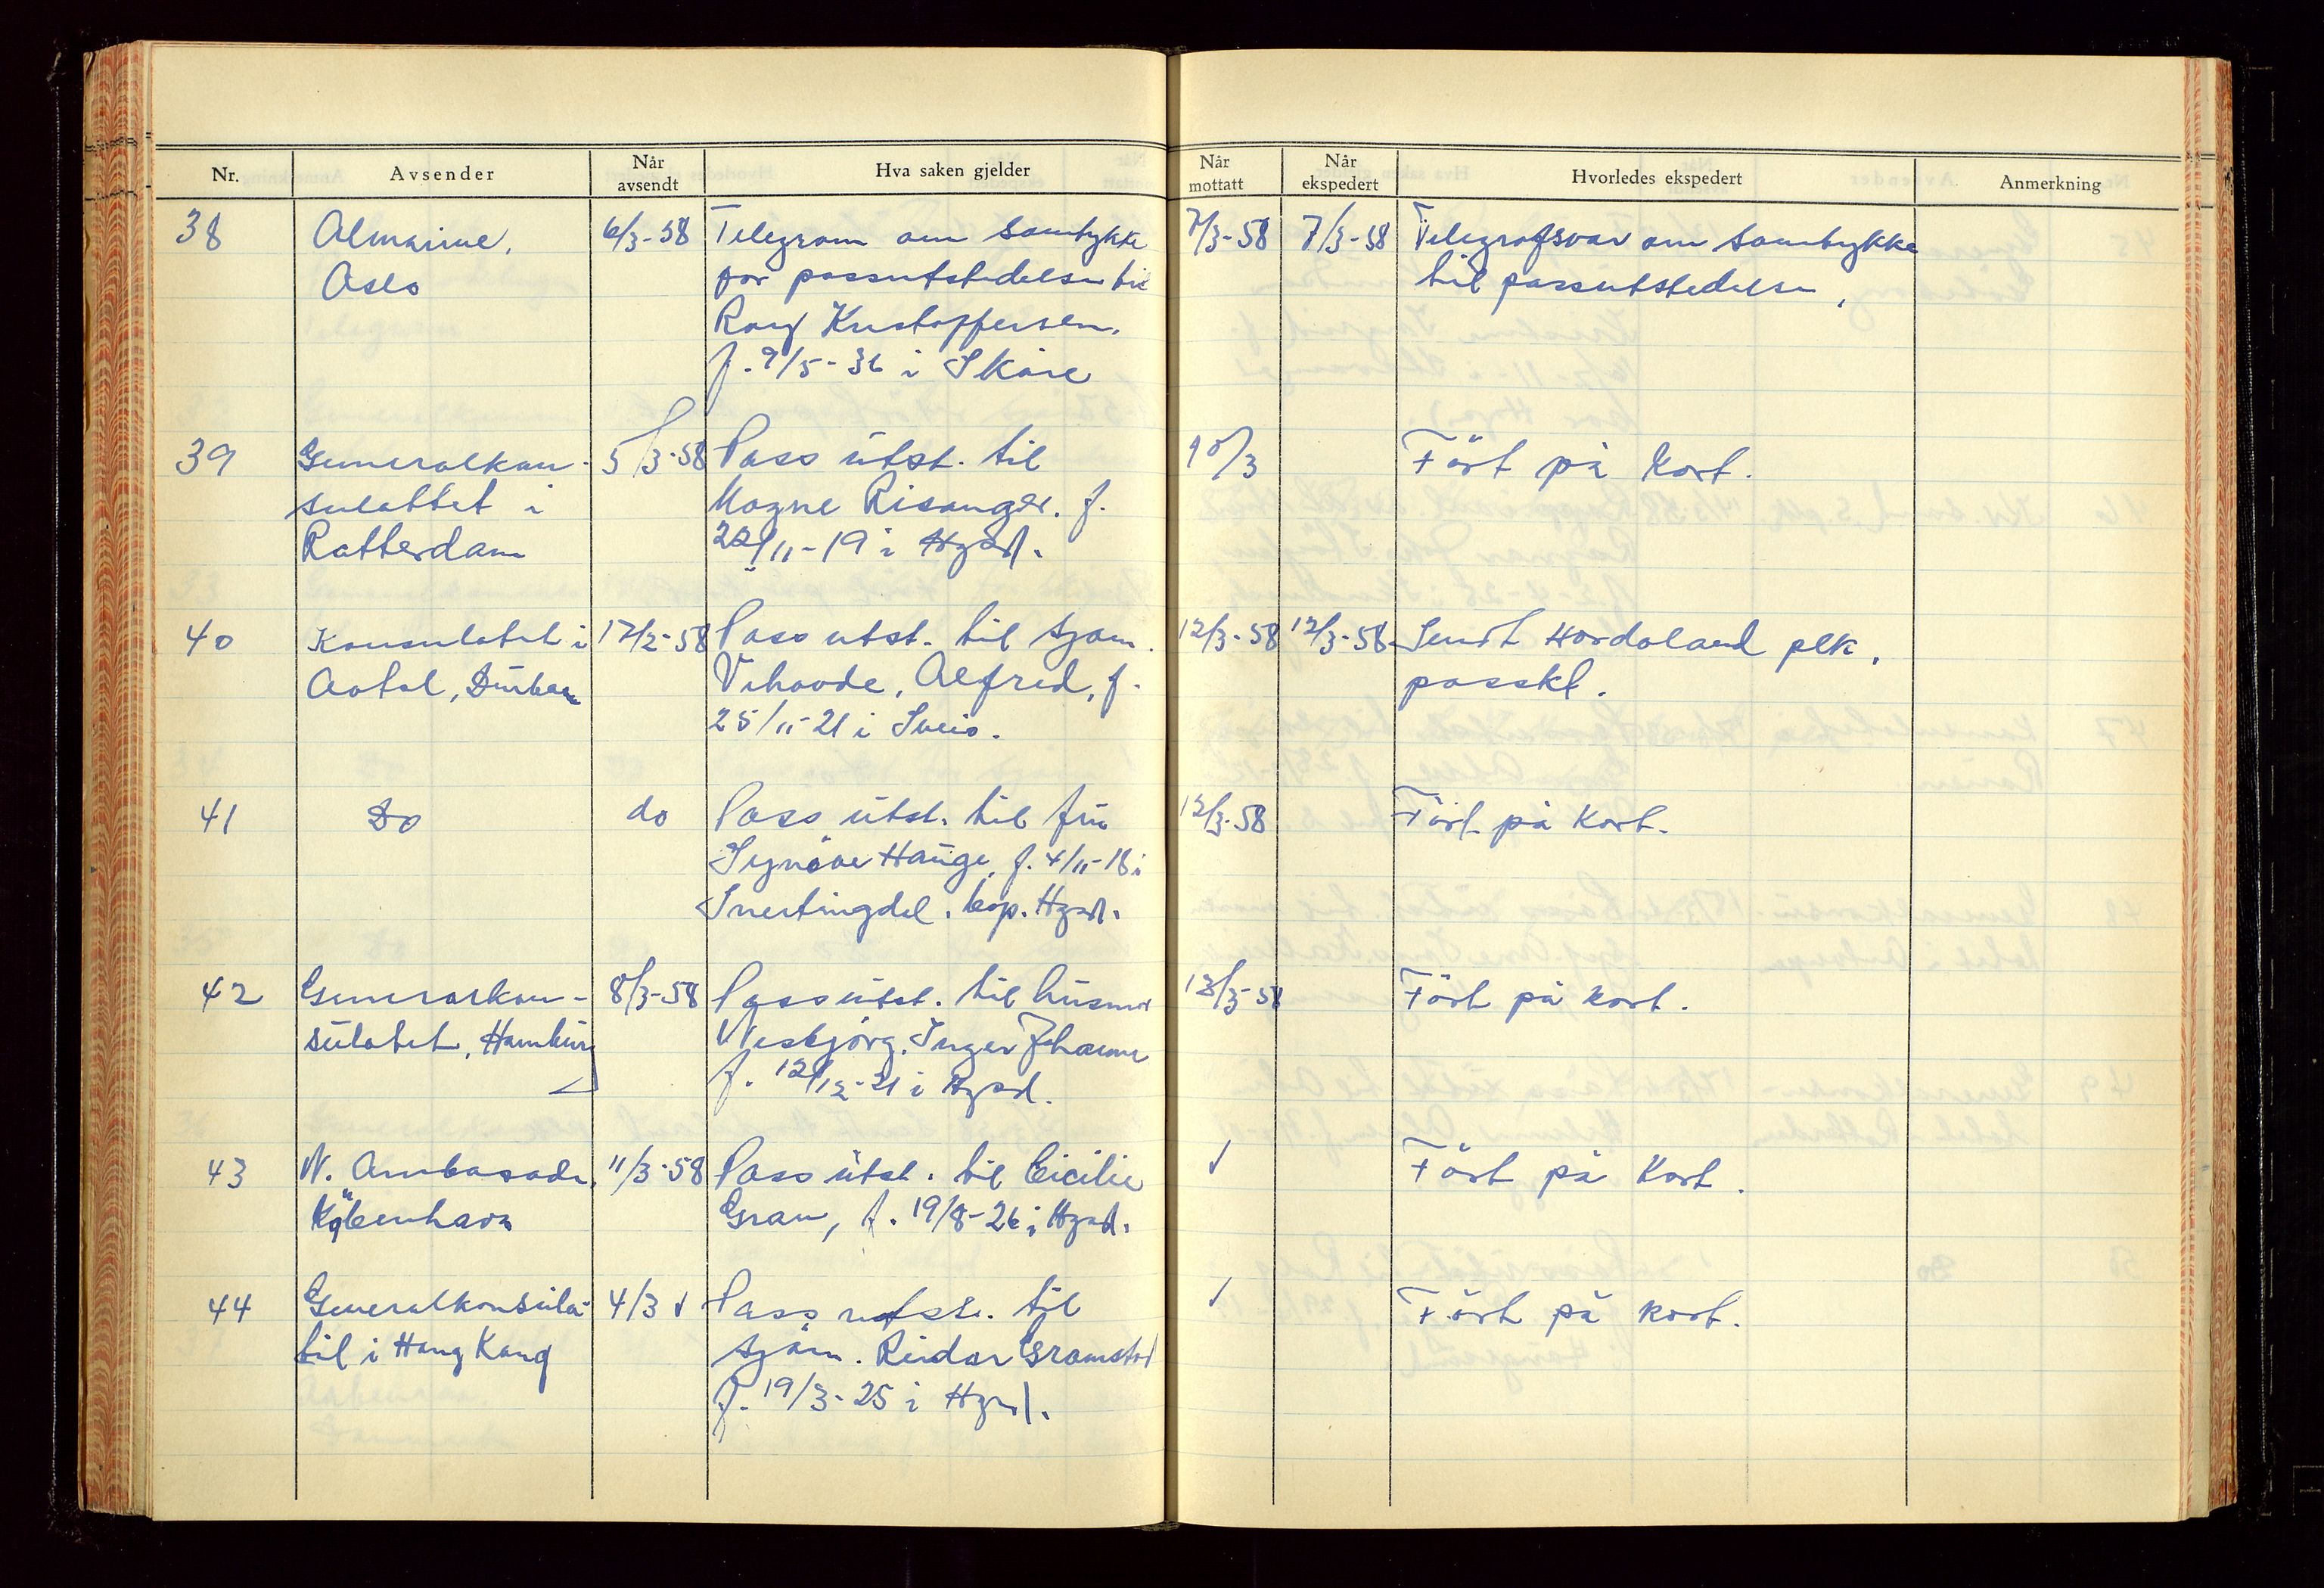 Nr. Avsender Når avsendt Hva saken gjelder Når mottatt Når ekspedert Hvorledes ekspedert Anmerkning
38 Almarine, 6/3-58 Telegram om samtykke 7/3-58 7/3-58 Telegrafsvar om samtykke
Oslo for passutstedelse til til passutstedelse,
Kristoffersen,
f. 9/5-36 i Skåre
39 Generalkon- 5/3-58 Pass utst. til 10/3 Ført på kort.
sulattet i Magne Risanger. f.
Rotterdam 22/11-19 i Hgsd.
40 Konsulatet i 17/2-58 Pass utst. til sjøm. 12/3-58 12/3-58 Sendt Hordaland plk,
Durban Vihovde, Alfred, f. passkt.
25/11-21 i Sveio.
41 Do do Pass utst. til fru 12/3-58 Ført på kort.
Synøve Hauge, f. 4/11-18 i
Snertingdal, bop. Hgsd.
42 Generalkon- 8/3-58 Pass utst. til husmor 12/3-58 Ført på kort.
sulatet, Hamburg Inger Johanne
f. 12/12-21 i Hgsd.
43 N. Ambasade, 11/3-58 Pass utst. til Cicilie √ Ført på kort.
København Gran, f. 19/8-26 i Hgsd.
44 Generalkonsula- 4/3 √ Pass utst. til √ Ført på kort.
til i Hong Kong sjøm. Reidar Gramstad
f. 19/3-25 i Hgsd.